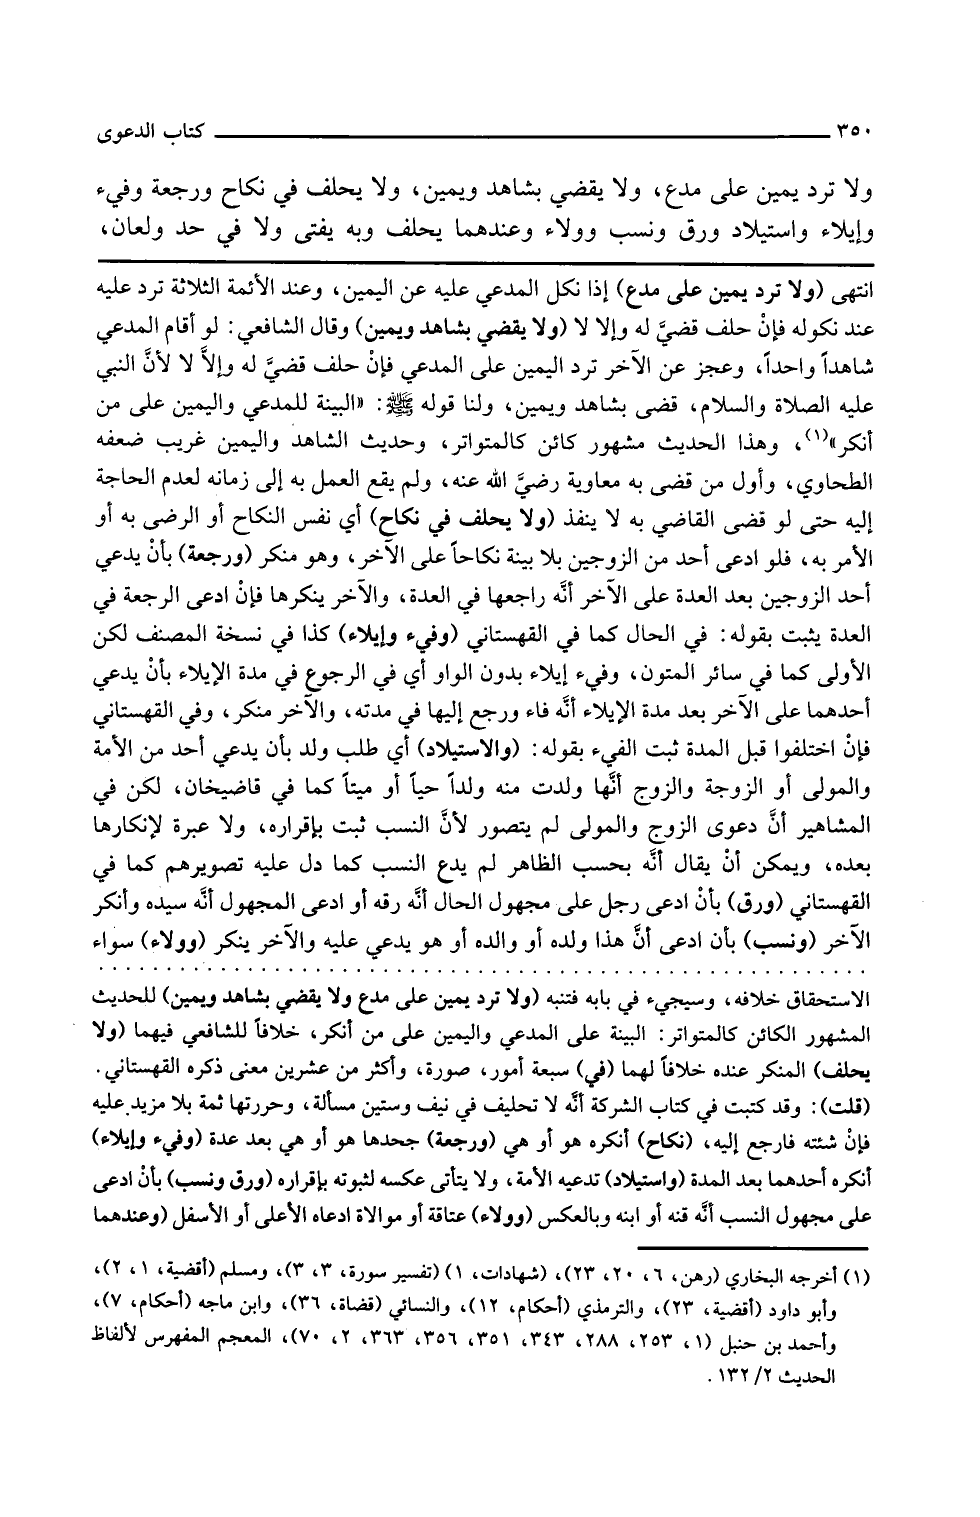 ٣٥٠ كتاب الدعوى
ولا ترد يمين على مدع، ولا يقضي بشاهد ويمين، ولا يحلف في نكاح ورجعة وفيء
وإيلاء واستيلاد ورق ونسب وولاء وعندهما يحلف وبه يفتى ولا في حد ولعان،
انتهى (ولا ترد يمين على مدع) إذا نكل المدعي عليه عن اليمين، وعند الأئمة الثلاثة ترد عليه
عند نكوله فإنْ حلف قضيَّ له وإلا لا (ولا يقضي بشاهد ويمين) وقال الشافعي: لو أقام المدعي
شاهداً واحداً، وعجز عن الآخر ترد اليمين على المدعي فإنْ حلف قضيَّ له وإلاَّ لا لأنَّ النبي
عليه الصلاة والسلام، قضى بشاهد ويمين، ولنا قوله ﷺ: «البينة للمدعي واليمين على من
أنكر»(١)، وهذا الحديث مشهور كائن كالمتواتر، وحديث الشاهد واليمين غريب ضعفه
الطحاوي، وأول من قضى به معاوية رضيَّ الله عنه، ولم يقع العمل به إلى زمانه لعدم الحاجة
إليه حتى لو قضى القاضي به لا ينفذ (ولا يحلف في نكاح) أي نفس النكاح أو الرضى به أو
الأمر به، فلو ادعى أحد من الزوجين بلا بينة نكاحاً على الآخر، وهو منكر (ورجعة) بأنْ يدعي
أحد الزوجين بعد العدة على الآخر أنَّه راجعها في العدة، والآخر ينكرها فإنْ ادعى الرجعة في
العدة يثبت بقوله: في الحال كما في القهستاني (وفيء وإيلاء) كذا في نسخة المصنف لكن
الأولى كما في سائر المتون، وفيء إيلاء بدون الواو أي في الرجوع في مدة الإيلاء بأنْ يدعي
أحدهما على الآخر بعد مدة الإيلاء أنَّه فاء ورجع إليها في مدته، والآخر منكر، وفي القهستاني
فإنْ اختلفوا قبل المدة ثبت الفيء بقوله: (والاستيلاد) أي طلب ولد بأن يدعي أحد من الأمة
والمولى أو الزوجة والزوج أنَّها ولدت منه ولداً حياً أو ميتاً كما في قاضيخان، لكن في
المشاهير أنَّ دعوى الزوج والمولى لم يتصور لأنَّ النسب ثبت بإقراره، ولا عبرة لإنكارها
بعده، ويمكن أنْ يقال أنَّه بحسب الظاهر لم يدع النسب كما دل عليه تصويرهم كما في
القهستاني (ورق) بأنْ ادعى رجل على مجهول الحال أنَّه رقه أو ادعى المجهول أنَّه سيده وأنكر
الآخر (ونسب) بأن ادعى أنَّ هذا ولده أو والده أو هو يدعي عليه والآخر ينكر (وولاء) سواء
الاستحقاق خلافه، وسيجيء في بابه فتنبه (ولا ترد يمين على مدع ولا يقضي بشاهد ويمين) للحديث
المشهور الكائن كالمتواتر: البينة على المدعي واليمين على من أنكر، خلافاً للشافعي فيهما (ولا
يحلف) المنكر عنده خلافاً لهما (في) سبعة أمور، صورة، وأكثر من عشرين معنى ذكره القهستاني.
(قلت): وقد كتبت في كتاب الشركة أنَّه لا تحليف في نيف وستين مسألة، وحررتها ثمة بلا مزيد عليه
فإنْ شئته فارجع إليه، (نكاح) أنكره هو أو هي (ورجعة) جحدها هو أو هي بعد عدة (وفيء وإيلاء)
أنكره أحدهما بعد المدة (واستيلاد) تدعيه الأمة، ولا يتأتى عكسه لثبوته بإقراره (ورق ونسب) بأنْ ادعى
على مجهول النسب أنَّه قنه أو ابنه وبالعكس (وولاء) عتاقة أو موالاة ادعاه الأعلى أو الأسفل (وعندهما
(١) أخرجه البخاري (رهن، ٦، ٢٠، ٢٣)، (شهادات، ١) (تفسير سورة، ٣، ٣)، ومسلم (أقضية، ١، ٢)،
وأبو داود (أقضية، ٢٣)، والترمذي (أحكام، ١٢)، والنسائي (قضاة، ٣٦)، وابن ماجه (أحكام، ٧)،
وأحمد بن حنبل (١، ٢٥٣، ٢٨٨، ٣٤٣، ٣٥١، ٣٥٦، ٣٦٣، ٢، ٧٠)، المعجم المفهرس لألفاظ
الحديث ٢/ ١٣٢.